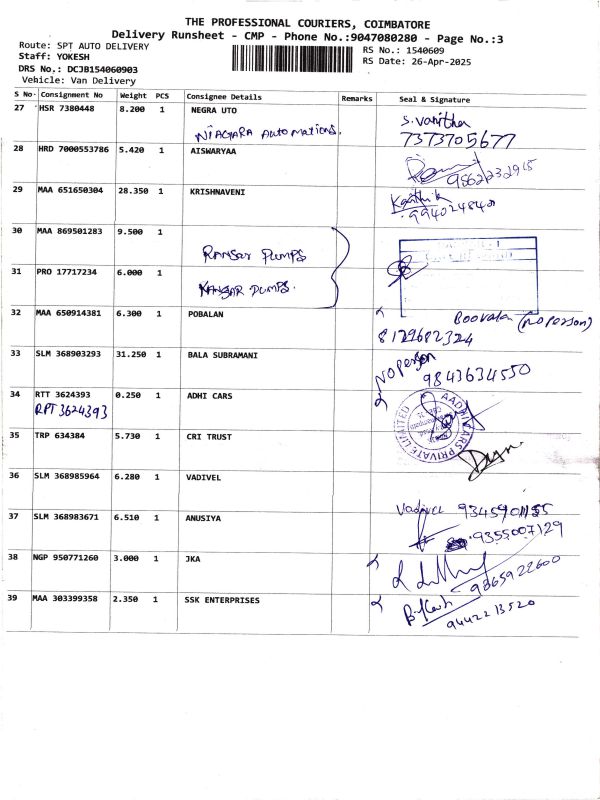 THE PROFESSIONAL COURIERS, COIMBATORE
Delivery Runsheet - CMP - Phone No.:9047080280 - Page No.:3
Route: SPT AUTO DELIVERY
Staff: YOKESH
DRS No.: DCJB154060903
Vehicle: Van Delivery
RS No.: 1540609
RS Date: 26-Apr-2025
S No Consignment No Weight PCS Consignee Details Remarks Seal & Signature
27 HSR 7380448 8.200 1 NEGRA UTO
NIAGARA Automations.
S. Vanitha
7373705677
28 HRD 7000553786 5.420 1 AISWARYAA
9562232915
29 MAA 651650304 28.350 1 KRISHNAVENI
Karthik
30 MAA 869501283 9.500 1
RANSAR PUMPS
31 PRO 17717234 6.000 1
RANSAR PUMPS.
32 MAA 650914381 6.300 1 POBALAN
Boovalan (No Person)
8129682324
33 SLM 368903293 31.250 1 BALA SUBRAMANI
No Person
9843634550
34 RTT 3624393 0.250 1 ADHI CARS
RPT 3624393
AADHI CARS PRIVATE LIMITED
35 TRP 634384 5.730 1 CRI TRUST
36 SLM 368985964 6.280 1 VADIVEL
Vadivel
37 SLM 368983671 6.510 1 ANUSIYA
9355007129
38 NGP 950771260 3.000 1 JKA
9865922600
39 MAA 303399358 2.350 1 SSK ENTERPRISES
9442213520